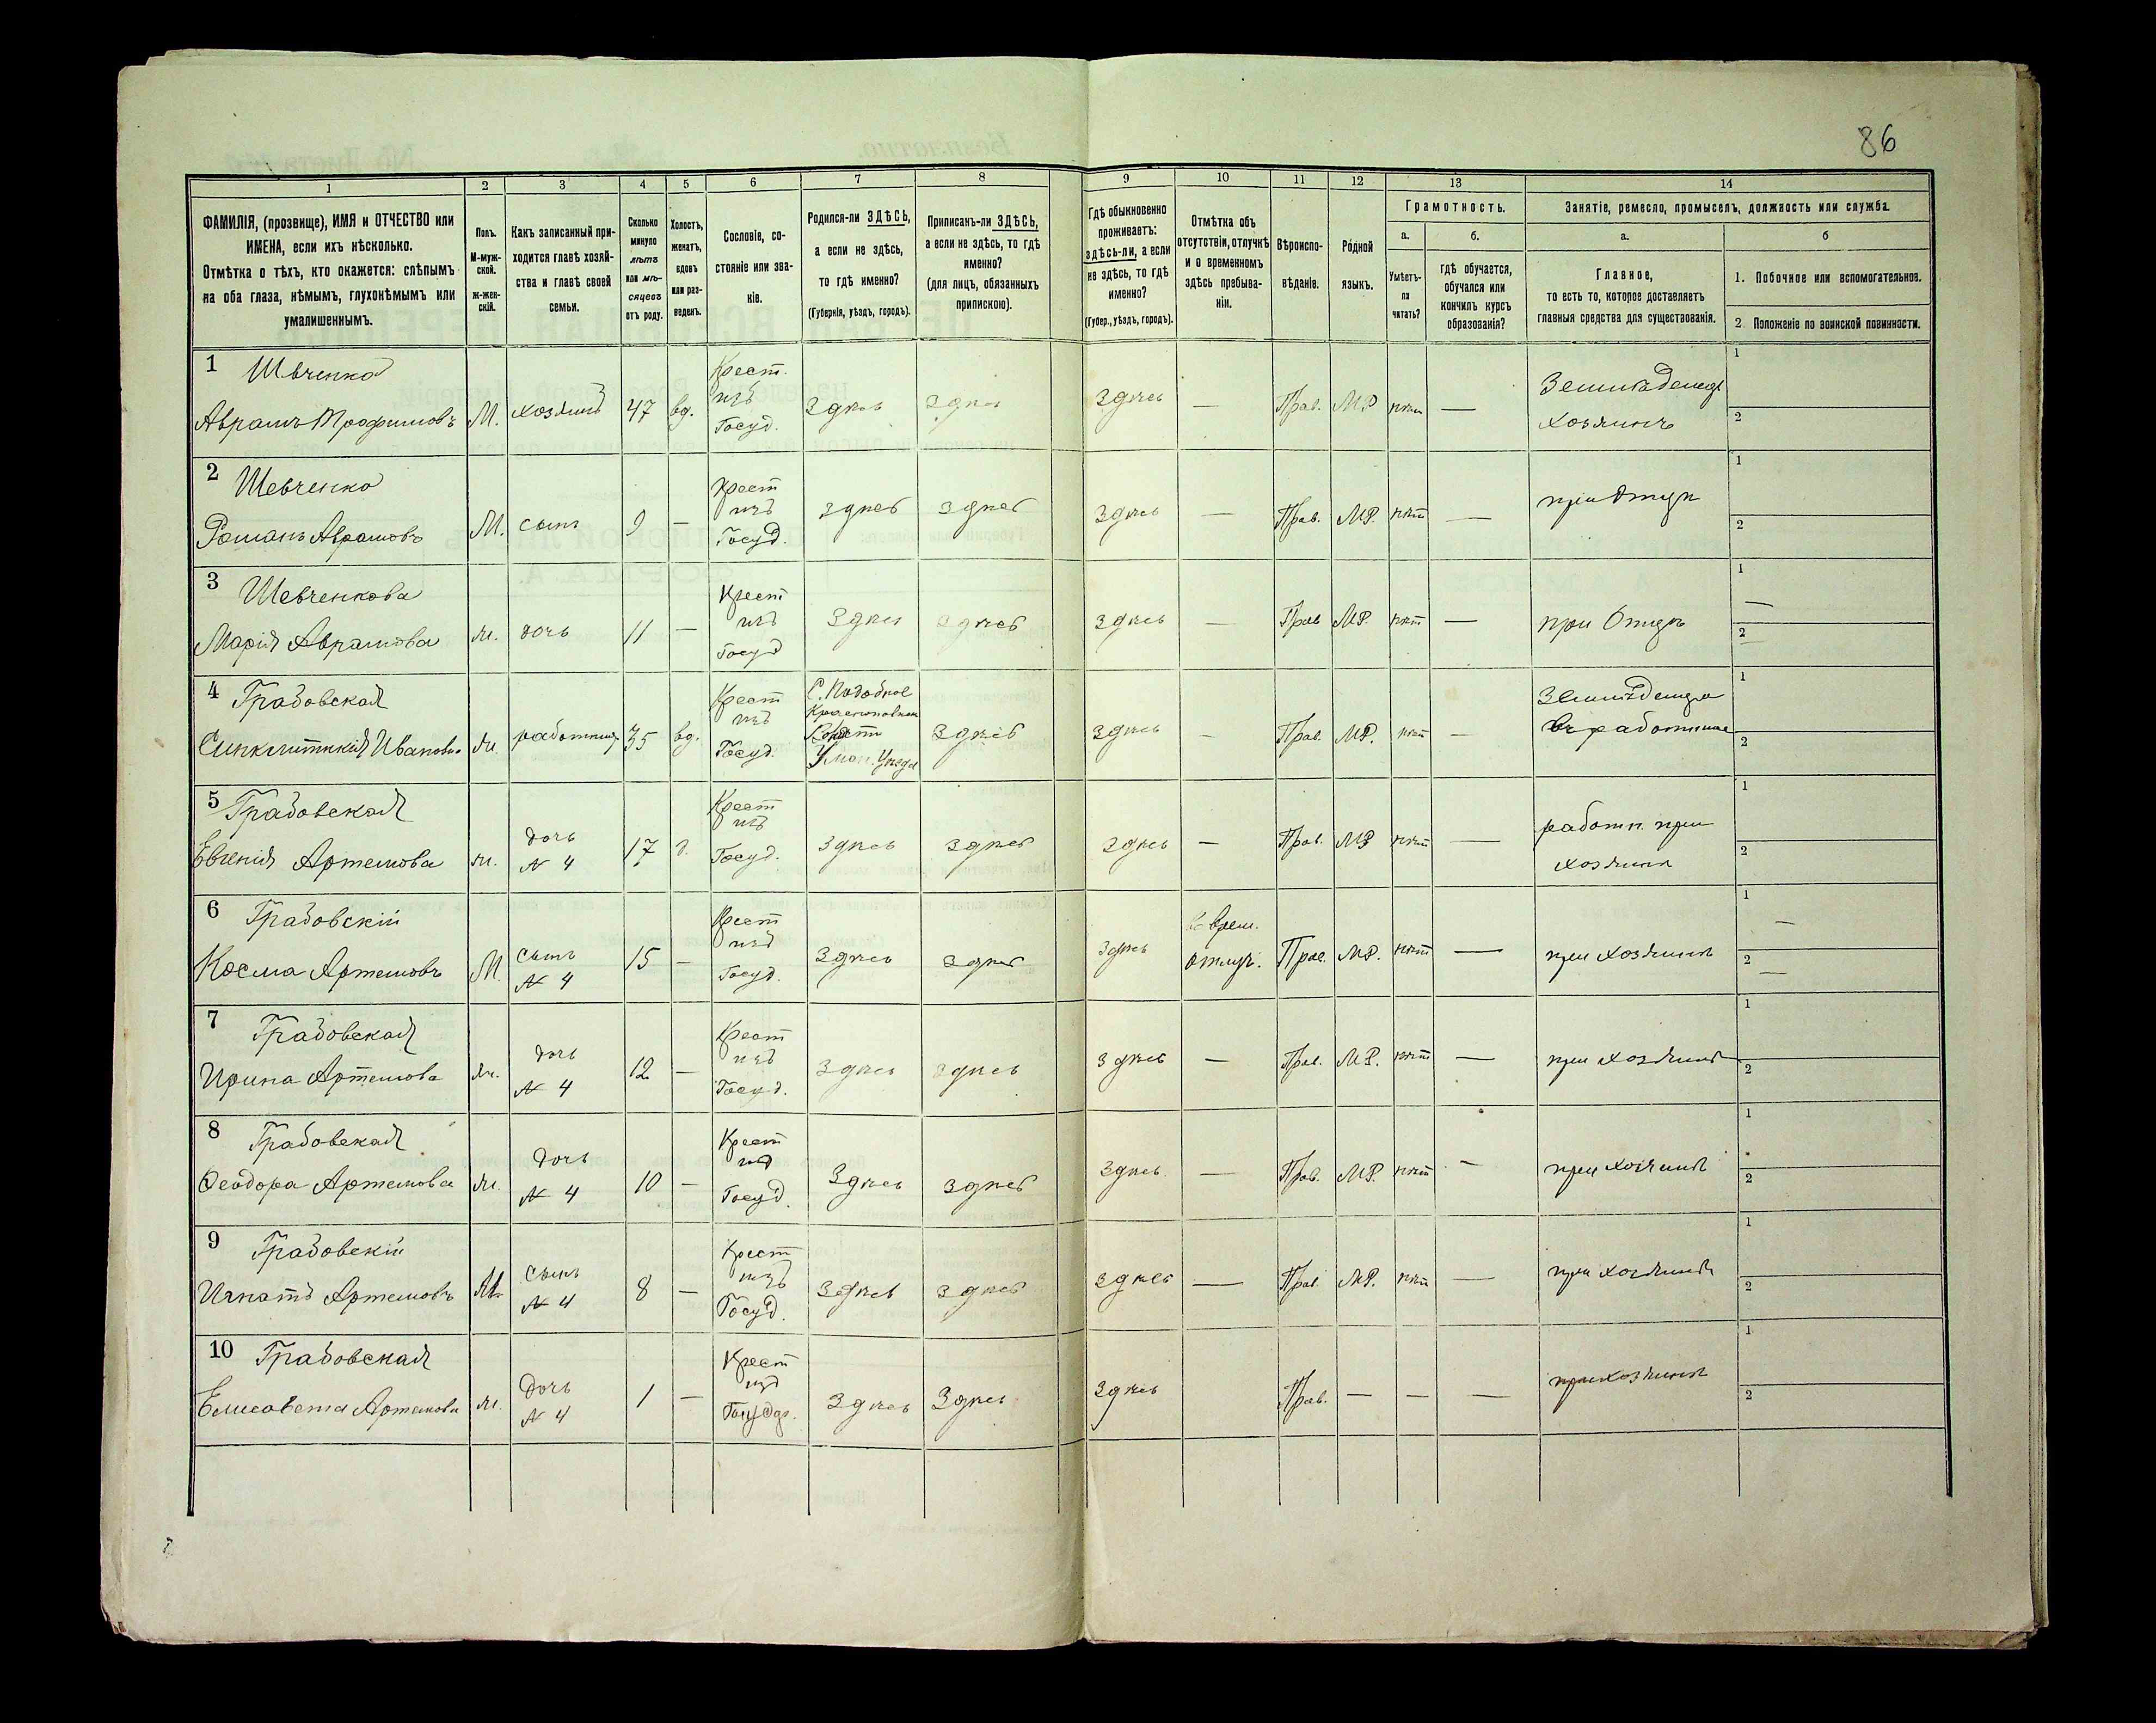 86
1 2 3 4 5 6 7 8 9 10 11 12 13 14
ФАМИЛІЯ, (прозвище), ИМЯ и ОТЧЕСТВО или
ИМЕНА, если ихъ нѣсколько.
Отмѣтка о тѣхъ, кто окажется: слѣпымъ
на оба глаза, нѣмымъ, глухонѣмымъ или
умалишеннымъ.
Полъ.
М-муж-
ской.
Ж-жен-
скій.
Какъ записанный при-
ходится главѣ хозяй-
ства и главѣ своей
семьи.
Сколько
минуло
лѣтъ
или мѣ-
сяцевъ
отъ роду.
Холостъ,
женатъ,
вдовъ
или раз-
веденъ.
Сословіе, со-
стояніе или зва-
ніе.
Родился-ли ЗДѢСЬ,
а если не здѣсь,
то гдѣ именно?
(Губернія, уѣздъ, городъ).
Приписанъ-ли ЗДѢСЬ,
а если не здѣсь, то гдѣ
именно?
(для лицъ, обязанныхъ
припискою).
Гдѣ обыкновенно
проживаетъ:
здѣсь-ли, а если
не здѣсь, то гдѣ
именно?
(Губер., уѣздъ, городъ).
Отмѣтка объ
отсутствіи, отлучкѣ
и о временномъ
здѣсь пребыва-
ніи.
Вѣроиспо-
вѣданіе.
Родной
языкъ.
Грамотность.
а.
Умѣетъ-
ли
читать?
б.
гдѣ обучается,
обучался или
кончилъ курсъ
образованія?
Занятіе, ремесло, промыселъ, должность или служба.
а.
Главное,
то есть то, которое доставляетъ
главныя средства для существованія.
б
1. Побочное или вспомогательное.
2. Положеніе по воинской повинности.
1 Шевченко
Аврамъ Трофимовъ М. хозяинъ 47 вд. Крест. изъ Госуд. Здѣсь Здѣсь Здѣсь — Прав. МР. нѣт — Земледелецъ хозяинъ 1 2
2 Шевченко
Романъ Аврамовъ М. сынъ 9 — Крест изъ Госуд. здѣсь здѣсь здѣсь — Прав. МР. нѣт — при Отцѣ 1 2
3 Шевченкова
Марія Аврамова ж. дочь 11 — Крест изъ Госуд Здѣсь здѣсь здѣсь — Прав МР. нѣт — при Отцѣ 1 — 2 —
4 Грабовская
Синклитикія Иванова ж. работница 35 вд. Крест изъ Госуд. С. Подобное Уман. Уѣзда Здѣсь здѣсь — Прав. МР. нѣт — 1 2
5 Грабовская
Евгенія Артемова ж. дочь N 4 17 Крест изъ Госуд. здѣсь здѣсь здѣсь — Прав. МР нѣт — работн. при хозяинѣ 1 2
6 Грабовскій
Косма Артемовъ М. сынъ N 4 15 — Крест изъ Госуд. Здѣсь здѣсь здѣсь во врем. отлуч. Прав. МР. нѣт — при хозяинѣ 1 — 2 —
7 Грабовская
Ирина Артемова ж. дочь N 4 12 — Крест изъ Госуд. Здѣсь здѣсь здѣсь — Прав. МР. нѣт — при хозяинѣ 1 2
8 Грабовская
Феодора Артемова ж. дочь N 4 10 — Крест изъ Госуд. Здѣсь здѣсь здѣсь — Прав. МР. нѣт — при хозяинѣ 1 2
9 Грабовскій
Игнатъ Артемовъ М сынъ N 4 8 — Крест изъ Госуд. Здѣсь здѣсь здѣсь — Прав. МР. нѣт — при хозяинѣ 1 2
10 Грабовская
Елисавета Артемова ж. дочь N 4 1 — Крест изъ Здѣсь Здѣсь здѣсь Прав. — — — при хозяинѣ 1 2